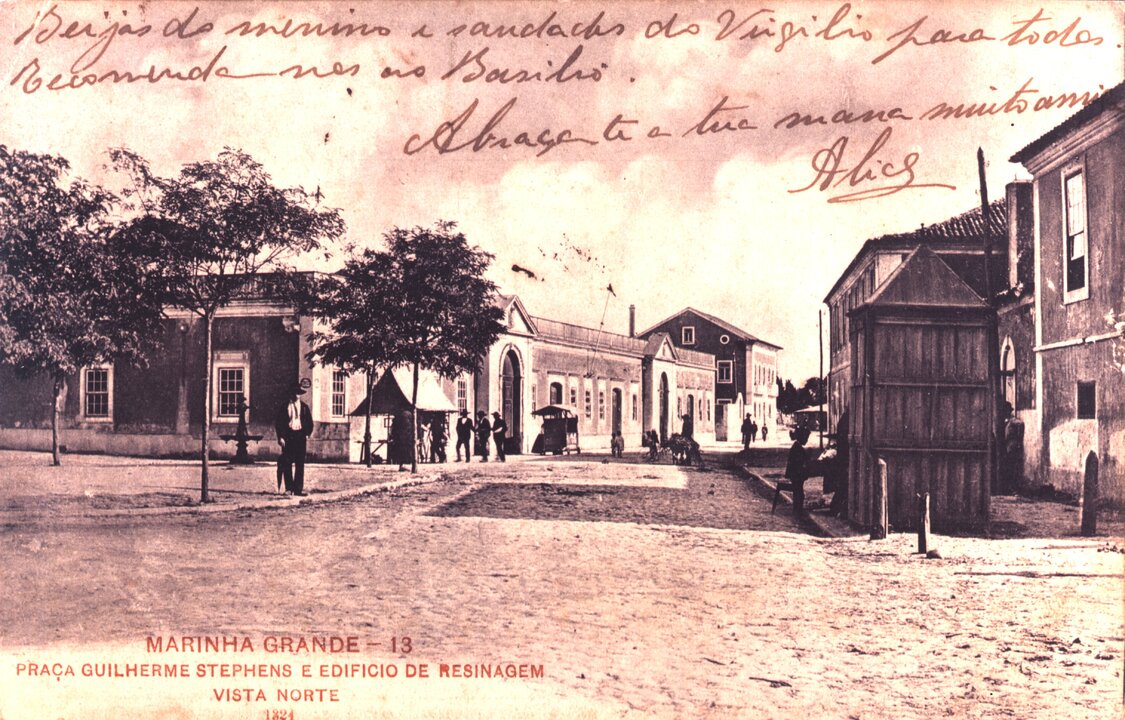 Beijos do menino e saudades do Virgilio para todos.
Recomenda-nos ao Basilio.
Abraça-te a tua mana muito ami
Alice
MARINHA GRANDE – 13
PRAÇA GUILHERME STEPHENS E EDIFICIO DE RESINAGEM
VISTA NORTE
1324